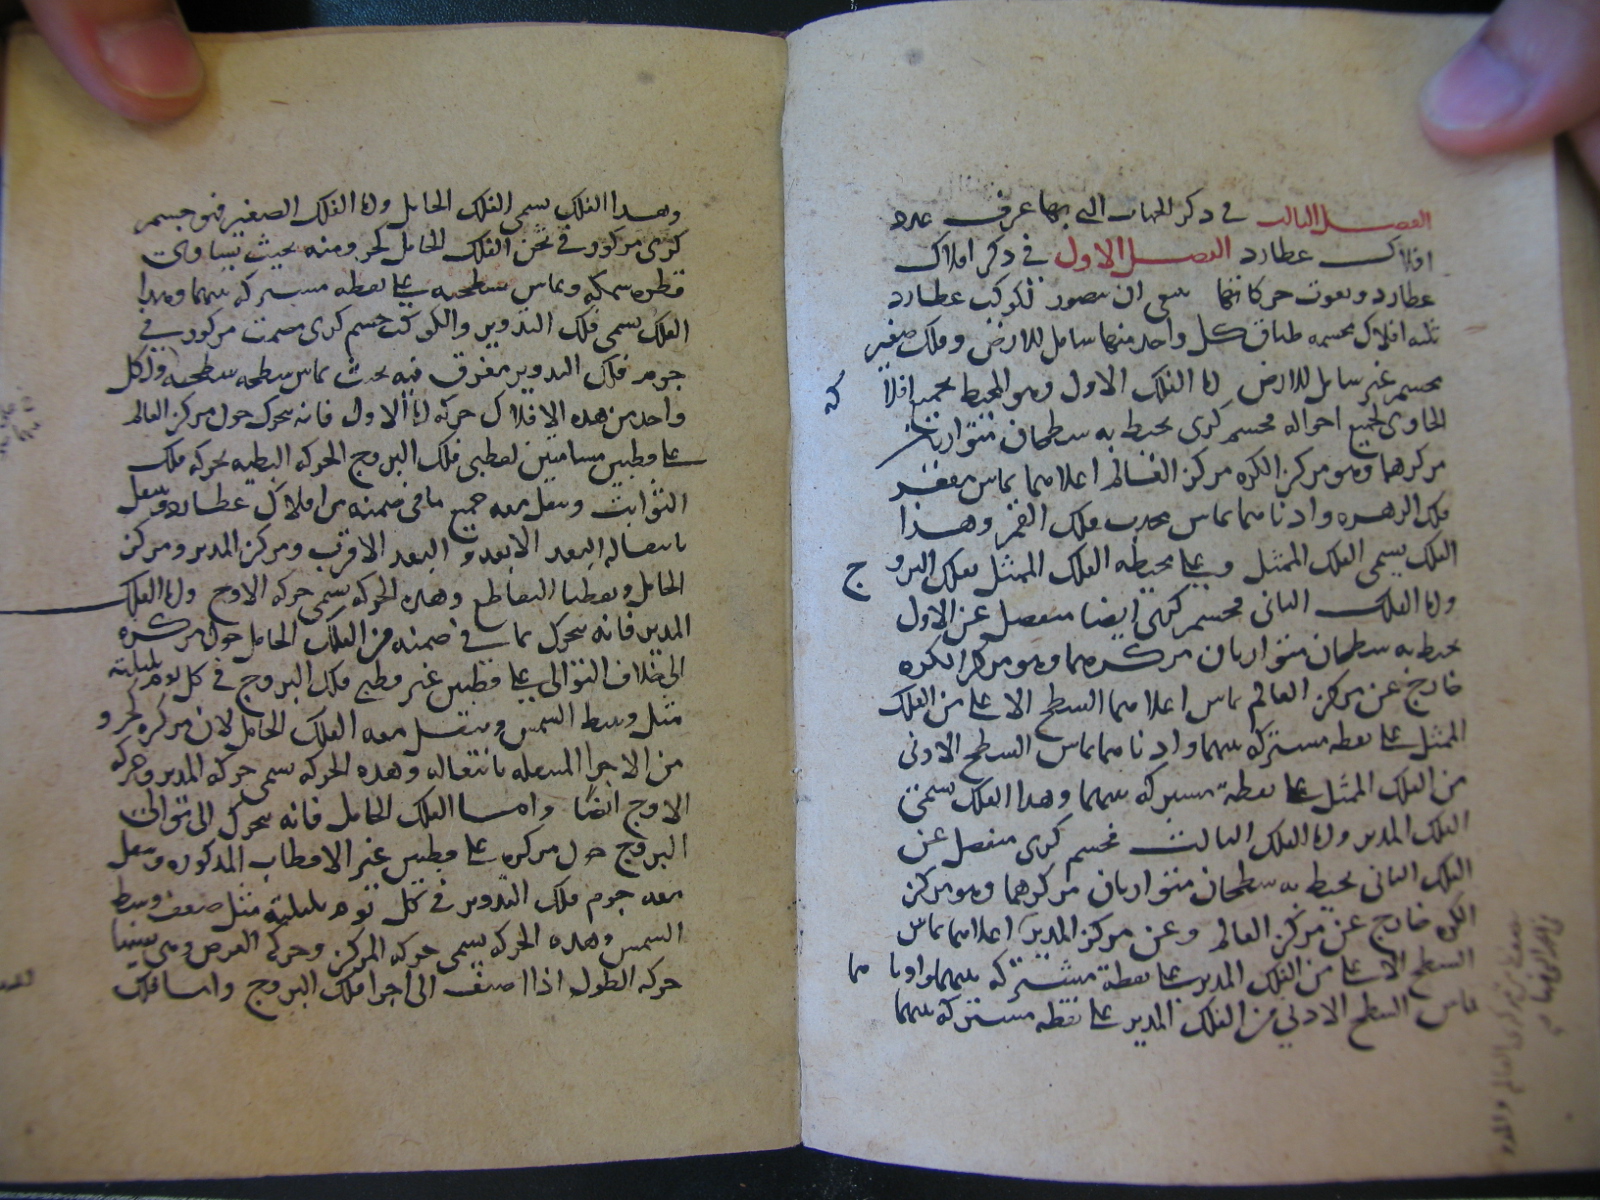 الفصل الثالث في ذكر الجهات التي بها عرف عدد
افلاك عطارد الفصل الاول في ذكر افلاك
عطارد ونعوت حركاتها ينبغي ان نتصور لكوكب عطارد
ثلثه افلاك مجسمه طباق كل واحد منها شامل للارض وفلك صغير
مجسم غير شامل للارض اما الفلك الاول وهو المحيط بجميع افلاكه
الحاوي لجميع احواله فمجسم كري يحيط به سطحان متوازيان
مركزهما وهو مركز الكره مركز العالم اعلاهما يماس مقعر
فلك الزهره وادناهما يماس محدب فلك القمر وهذا
الفلك يسمى الفلك الممثل وعلى محيطه الفلك الممثل بفلك البروج
واما الفلك الثاني فمجسم كري ايضا منفصل عن الاول
يحيط به سطحان متوازيان مركزهما وهو مركز الكره
خارج عن مركز العالم يماس اعلاهما السطح الاعلى من الفلك
الممثل على نقطه مشتركه بينهما وادناهما يماس السطح الادنى
من الفلك الممثل على نقطة مشتركه بينهما وهذا الفلك يسمى
الفلك المدير واما الفلك الثالث فمجسم كري منفصل عن
الفلك الثاني يحيط به سطحان متوازيان مركزهما وهو مركز
الكره خارج عن مركز العالم وعن مركز المدير اعلاهما يماس
السطح الاعلى من الفلك المدير على نقطة مشتركه بينهما وادناهما
يماس السطح الادنى من الفلك المدير على نقطه مشتركه بينهما
وهذا الفلك يسمى الفلك الحامل واما الفلك الصغير فهو جسم
كري مركوز في ثخن الفلك الحامل كجزو منه بحيث يساوي
قطره سمكه ويماس سطحيه على نقطه مشتركه بينهما وهذا
الفلك يسمى فلك التدوير والكوكب جسم كري مصمت مركوز في
جرم فلك التدوير مغرق فيه بحيث يماس سطحه سطحه ولكل
واحد من هذه الافلاك حركه اما الاول فانه يتحرك حول مركز العالم
على قطبين مسامتين لقطبي فلك البروج الحركه البطيه بحركه فلك
الثوابت وينقل معه جميع ما في ضمنه من افلاك عطارد وينتقل
بانتقاله البعد الابعد والبعد الاقرب ومركز المدير ومركز
الحامل ونقطتا التقاطع وهذه الحركه تسمى حركه الاوج واما الفلك
المدير فانه يتحرك بما في ضمنه من الفلك الحامل حول مركزه
الى خلاف التوالي على قطبين غير قطبي فلك البروج في كل يوم بليلته
مثل وسط الشمس وينتقل معه الفلك الحامل لان مركزه كجزو
من الاجزا المنتقله بانتقاله وهذه الحركه تسمى حركه المدير وحركه
الاوج ايضا واما الفلك الحامل فانه يتحرك الى توالي
البروج حول مركزه على قطبين غير الاقطاب المذكوره وينقل
معه جرم فلك التدوير في كل يوم بليلته مثل ضعف وسط
الشمس وهذه الحركه تسمى حركه المركز وحركه العرض وهي بعينها
حركه الطول اذا اضيف الى اجزا فلك البروج واما فلك